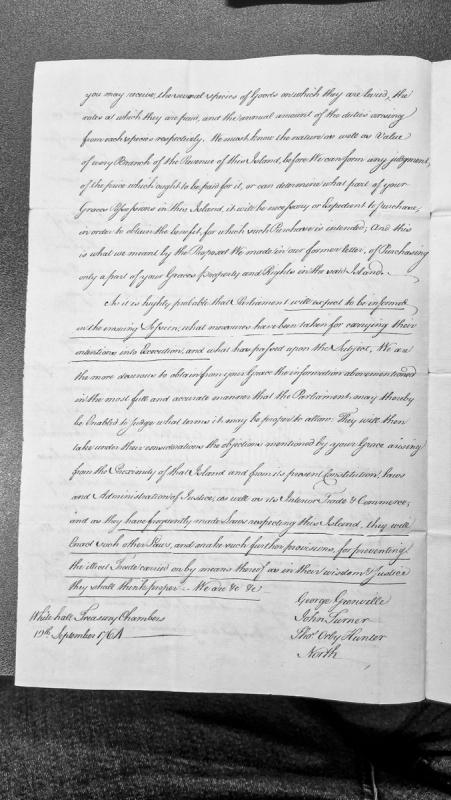 you may receive, the several species of Goods on which they are levied, the
rates at which they are paid, and the annual amount of the duties arising
from each species respectively. We must know the nature as well as Value
of every Branch of the Revenue of this Island, before We can form any judgment,
of the price which ought to be paid for it, or can determine what part of your
Graces Possessions in this Island, it will be necessary or Expedient to purchase,
in order to obtain the benefit, for which such Purchase is intended; And this
is what we meant by the Proposal We made in our former letter, of Purchasing
only a part of your Graces Property and Rights in the said Island.
As it is highly probable that Parliament will expect to be informed
in the ensuing Session, what measures have been taken for carrying their
intentions into Execution, and what has passed upon the Subject, We are
the more desirous to obtain from your Grace the information abovementioned
in the most full and accurate manner that the Parliament may thereby
be Enabled to judge what terms it may be proper to allow: They will then
take under their considerations the objections mentioned by your Grace arising
from the Proximity of that Island and from its present Constitution, Laws
and Administration of Justice, as well as its Interior Trade & Commerce,
and as they have frequently made Laws respecting this Island, they will
Enact such other Laws, and make such further provisions, for preventing
the illicit Trade carried on by means thereof as in their wisdom & justice
they shall think proper. We are &c &c
George Grenville
John Turner
Thos. Orby Hunter
North
White hall Treasury Chambers
19th September 1764